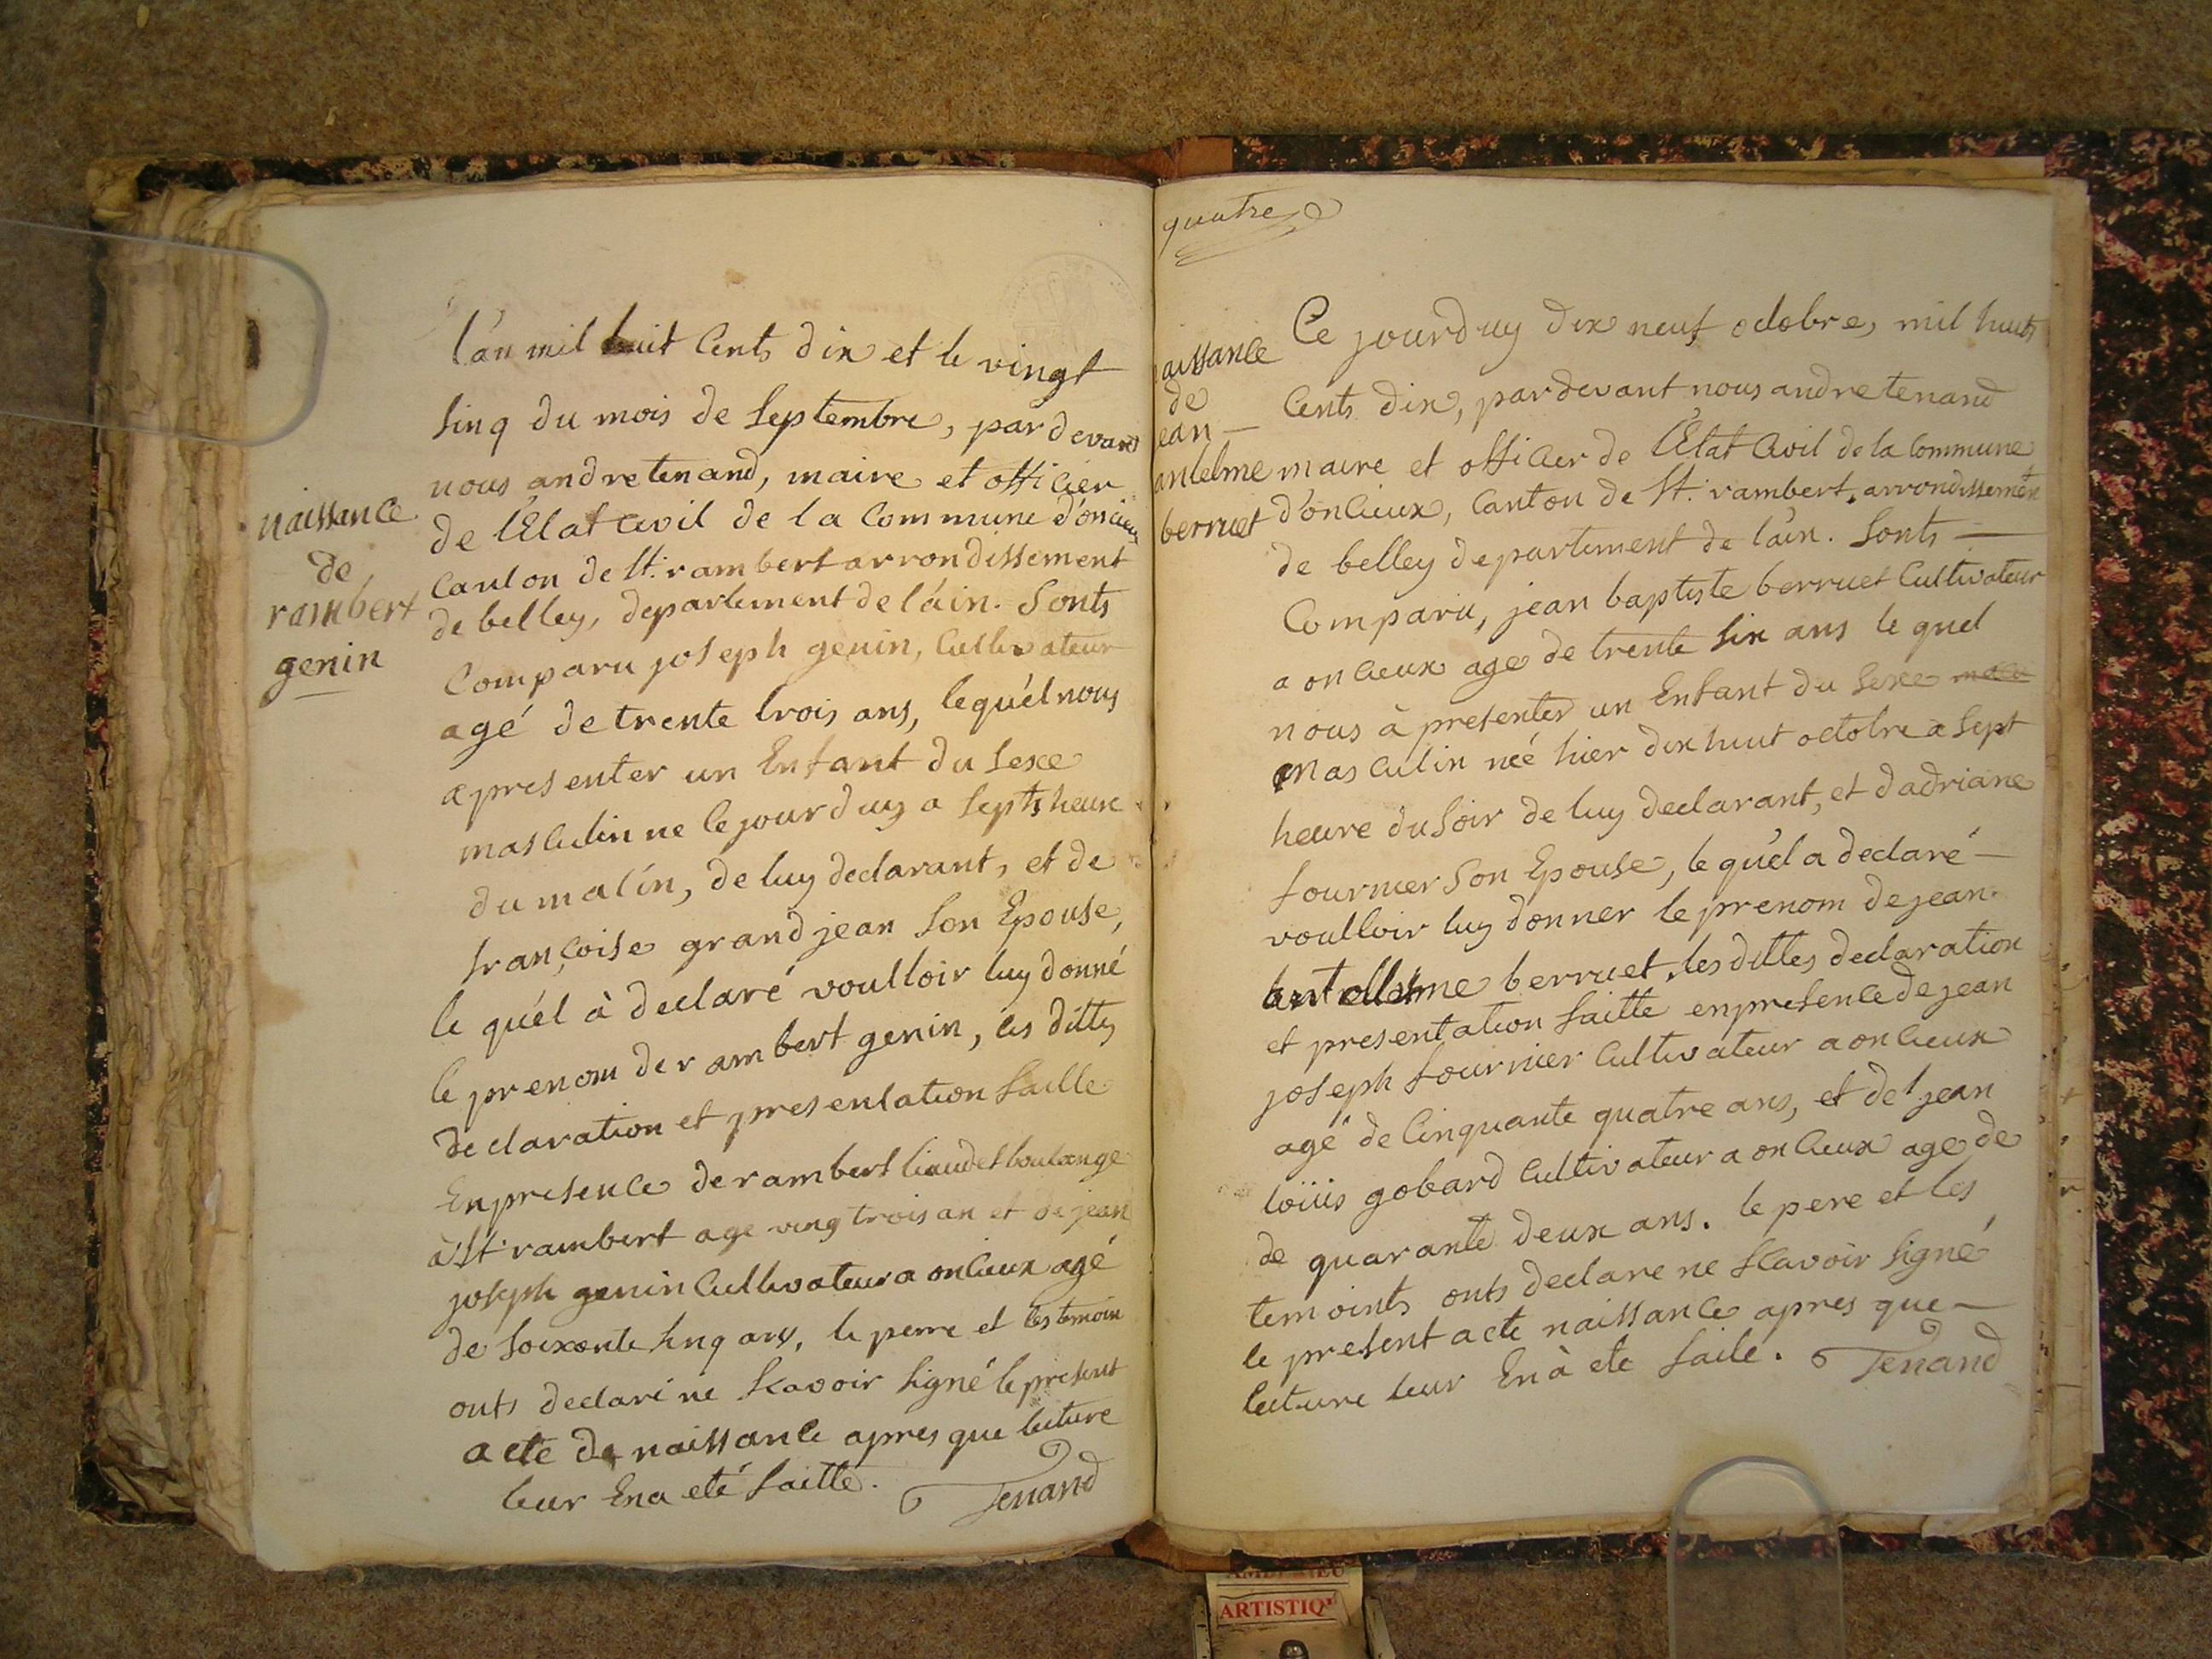 naissance
de
rambert
genin
l'an mil huit Cents dix et le vingt
sinq du mois de Septembre, pardevant
nous andre tenand, maire et officier
de l'Etat Civil de la Commune d'oncieux
Canton de St. rambert arrondissement
de belley, departement de l'ain. Sonts
Comparu joseph genin, Cultivateur
agé de trente trois ans, lequ'el nous
apresenter un Enfant du Sexe
masculin ne cejourduy a Septs heure
du matin, de luy declarant, et de
françoise grandjean Son Epouse,
le qu'el à declaré voulloir luy donné
le prenom de rambert genin, les dittes
declaration et presentation faitte
En presence de rambert liaudet boulange
à St. rambert age ving trois an et de jean
joseph genin Cultivateur a oncieux agé
de Soixante sinq ans, le perre et les temoin
onts declaré ne Scavoir Signé le present
acte de naissance apres que lecture
leur En a eté faitte. Tenand
quatre
aissance
de
ean
antelme
berruet
Ce jourduy dix neuf octobre, mil huits
Cents dix, pardevant nous andre tenand
maire et officier de l'Etat Civil de la Commune
d'oncieux, Canton de St. rambert, arrondissement
de belley departement de l'ain. Sonts —
Comparu, jean baptiste berruet Cultivateur
a oncieux age de trente six ans le quel
nous à presenter un Enfant du Sexe
masculin neé hier dix huit octobre a Sept
heure du Soir de luy declarant, et d'adriane
fournier Son Epouse, le qu'el a declaré —
voulloir luy donner le prenom de jean.
berruet, les dittes declaration
et presentation faitte en presence de jean
joseph fournier Cultivateur a oncieux
agé de Cinquante quatre ans, et de jean
loüis gobard Cultivateur a oncieux age de
de quarante deux ans. le pere et les
temoints onts declare ne Scavoir Signé
le present acte naissance apres que —
lecture leur En à ete faite. Tenand
ARTISTIQ